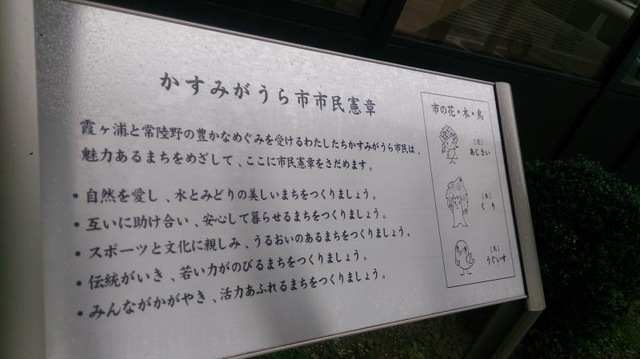 かすみがうら市市民憲章
霞ヶ浦と常陸野の豊かなめぐみを受けるわたしたちかすみがうら市民は、
魅力あるまちをめざして、ここに市民憲章をさだめます。
・自然を愛し、水とみどりの美しいまちをつくりましょう。
・互いに助け合い、安心して暮らせるまちをつくりましょう。
・スポーツと文化に親しみ、うるおいのあるまちをつくりましょう。
・伝統がいき、若い力がのびるまちをつくりましょう。
・みんながかがやき、活力あふれるまちをつくりましょう。
市の花・木・鳥
［花］
あじさい
［木］
くり
［鳥］
うぐいす